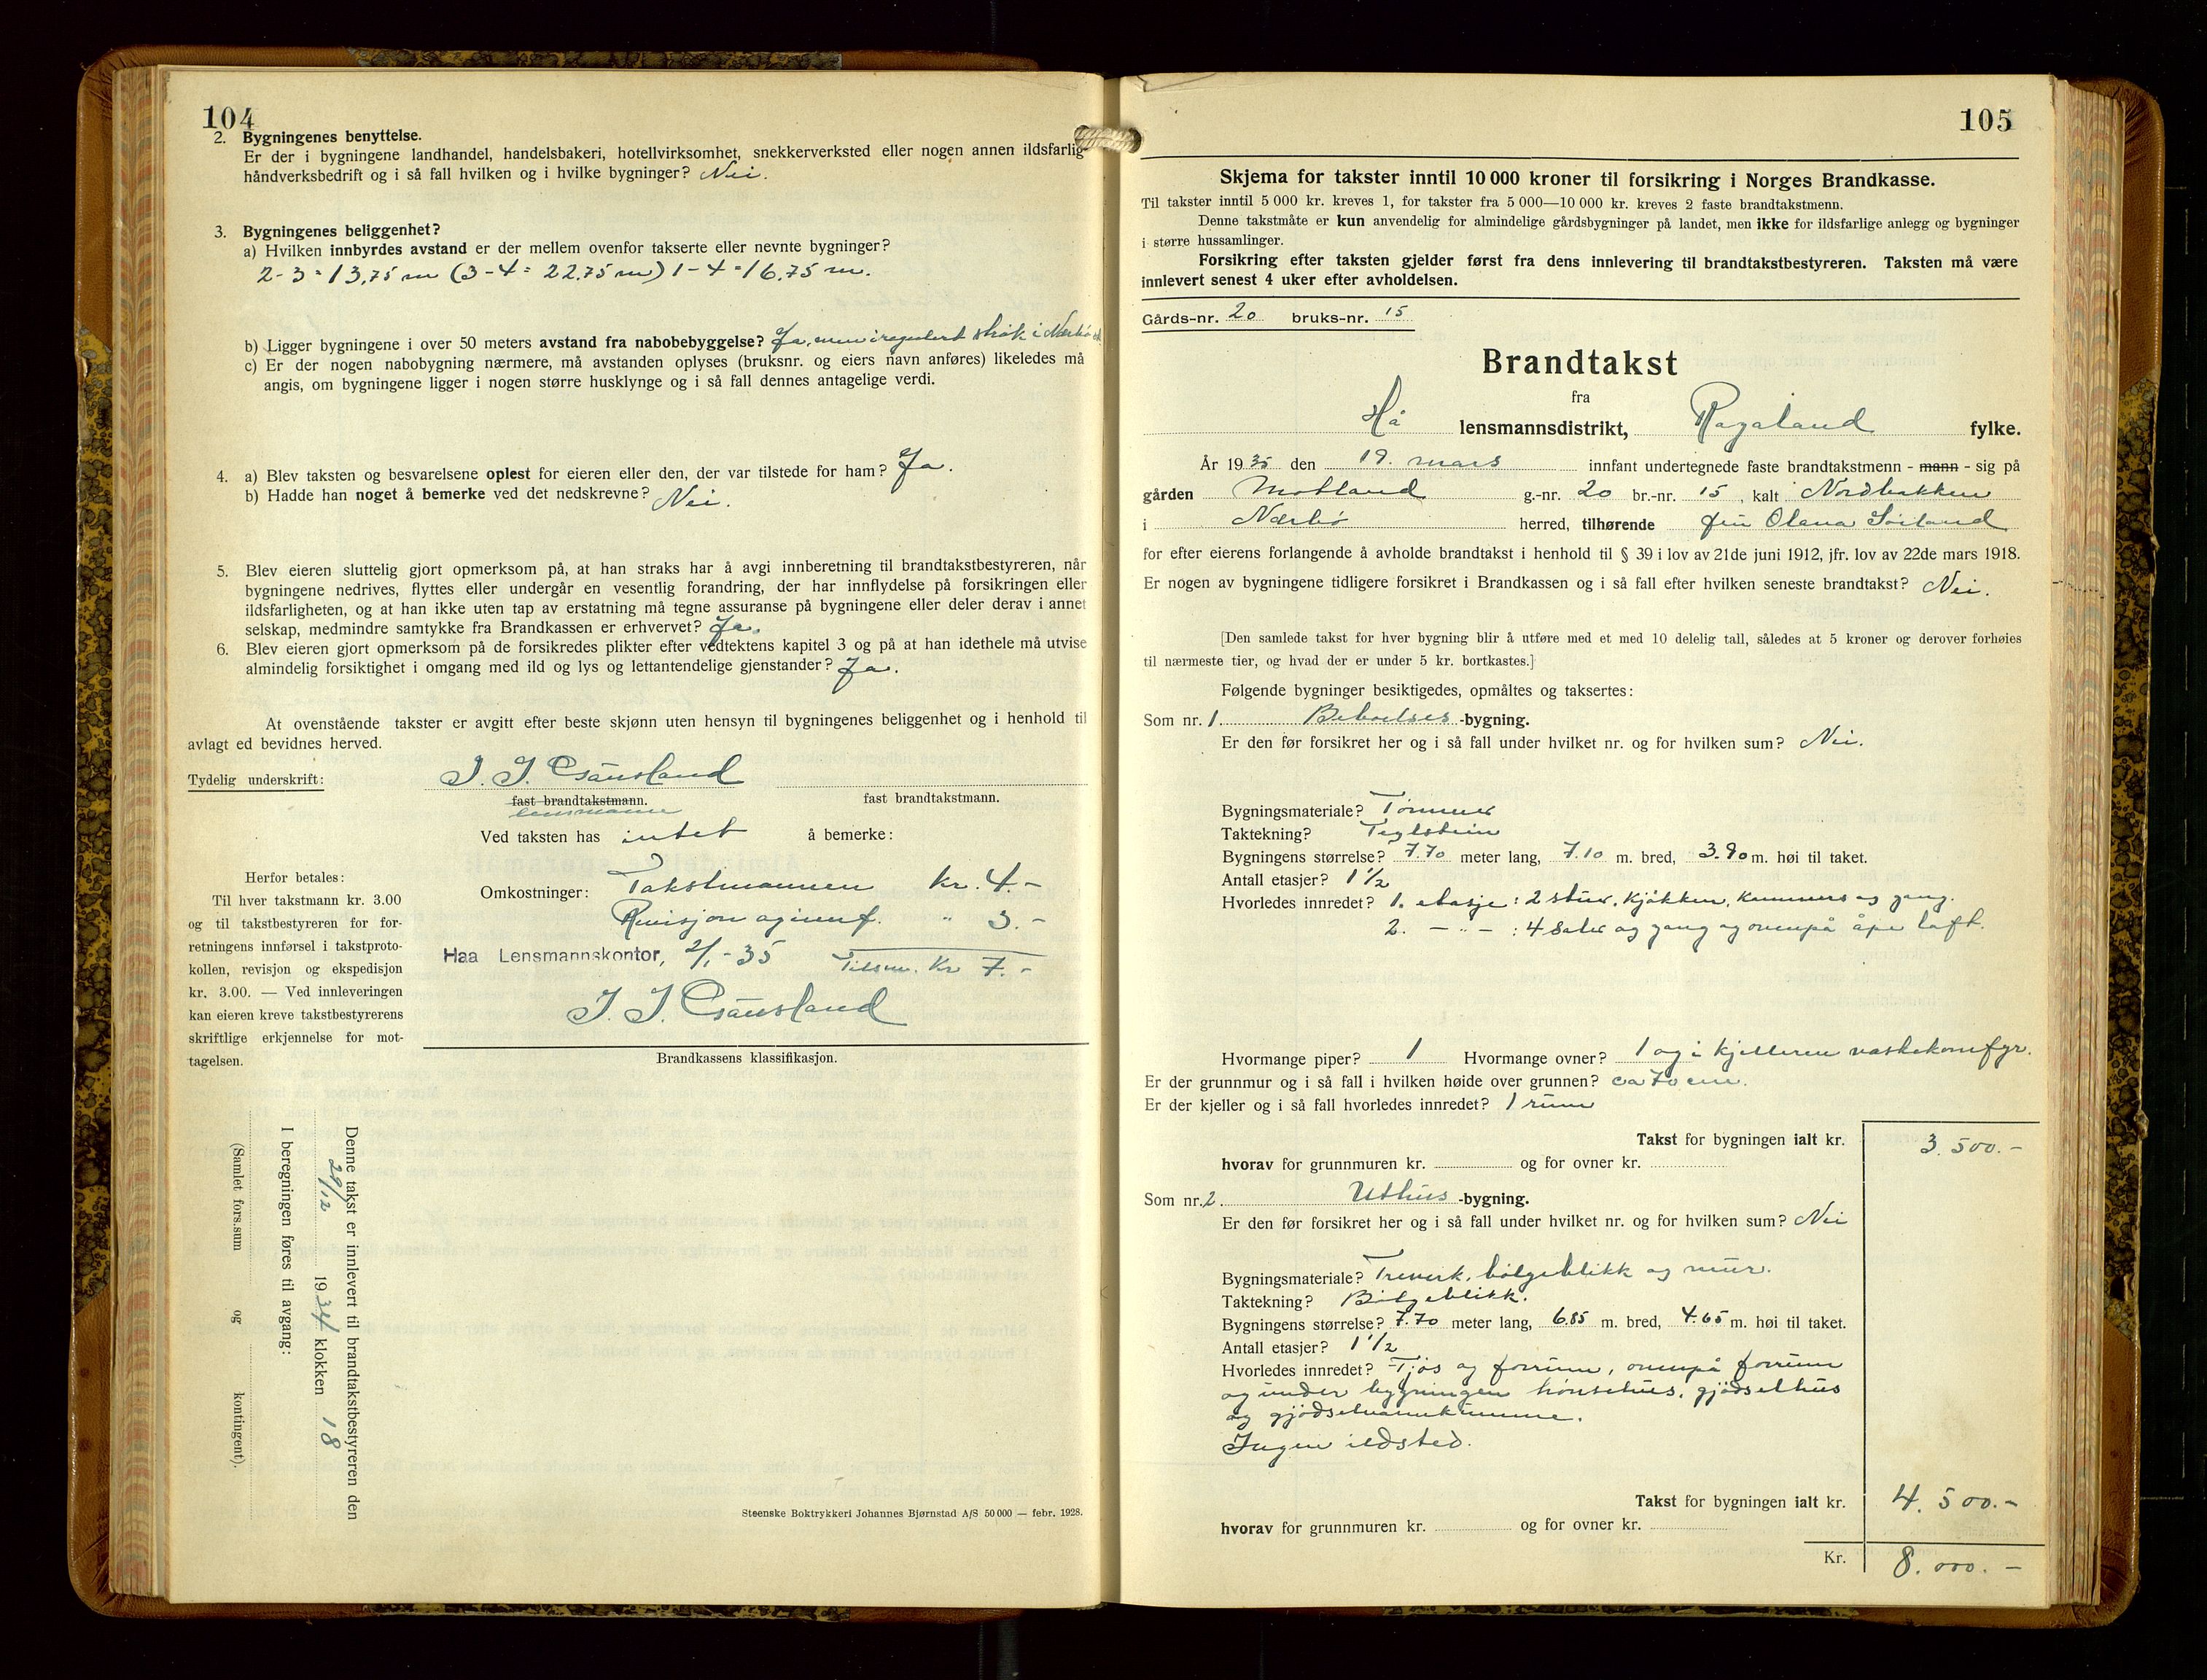 104
2. Bygningenes benyttelse.
Er der i bygningene landhandel, handelsbakeri, hotellvirksomhet, snekkerverksted eller nogen annen ildsfarlig
håndverksbedrift og i så fall hvilken og i hvilke bygninger? Nei.
3. Bygningenes beliggenhet?
a) Hvilken innbyrdes avstand er der mellem ovenfor takserte eller nevnte bygninger?
2-3 = 13,75 m (3-4 = 22,75 m) 1-4 = 16,75 m.
b) Ligger bygningene i over 50 meters avstand fra nabobebyggelse? Ja, men i regulert strøk i Nærbø
c) Er der nogen nabobygning nærmere, må avstanden oplyses (bruksnr. og eiers navn anføres) likeledes må
angis, om bygningene ligger i nogen større husklynge og i så fall dennes antagelige verdi.
4. a) Blev taksten og besvarelsene oplest for eieren eller den, der var tilstede for ham? Ja.
b) Hadde han noget å bemerke ved det nedskrevne? Nei.
5. Blev eieren sluttelig gjort opmerksom på, at han straks har å avgi innberetning til brandtakstbestyreren, når
bygningene nedrives, flyttes eller undergår en vesentlig forandring, der har innflydelse på forsikringen eller
ildsfarligheten, og at han ikke uten tap av erstatning må tegne assuranse på bygningene eller deler derav i annet
selskap, medmindre samtykke fra Brandkassen er erhvervet? Ja.
6. Blev eieren gjort opmerksom på de forsikredes plikter efter vedtektens kapitel 3 og på at han idethele må utvise
almindelig forsiktighet i omgang med ild og lys og lettantendelige gjenstander? Ja.
At ovenstående takster er avgitt efter beste skjønn uten hensyn til bygningenes beliggenhet og i henhold til
avlagt ed bevidnes herved.
Tydelig underskrift: J. J. Gausland
fast brandtakstmann. fast brandtakstmann.
lensmann
Ved taksten has intet å bemerke:
Omkostninger: Takstmannen kr. 4.-
Revisjon og innf. " 3.-
Haa Lensmannskontor, 2/1-35 Tilsm. Kr 7.-
J. J. Gausland
Herfor betales:
Til hver takstmann kr. 3.00
og til takstbestyreren for for-
retningens innførsel i takstproto-
kollen, revisjon og ekspedisjon
kr. 3.00. — Ved innleveringen
kan eieren kreve takstbestyrerens
skriftlige erkjennelse for mot-
tagelsen.
Brandkassens klassifikasjon.
Denne takst er innlevert til brandtakstbestyreren den
29/12 1934 klokken 18
I beregningen føres til avgang:
(Samlet fors.sum og kontingent).
Steenske Boktrykkeri Johannes Bjørnstad A/S 50 000 — febr. 1928.
105
Skjema for takster inntil 10 000 kroner til forsikring i Norges Brandkasse.
Til takster inntil 5 000 kr. kreves 1, for takster fra 5 000—10 000 kr. kreves 2 faste brandtakstmenn.
Denne takstmåte er kun anvendelig for almindelige gårdsbygninger på landet, men ikke for ildsfarlige anlegg og bygninger
i større hussamlinger.
Forsikring efter taksten gjelder først fra dens innlevering til brandtakstbestyreren. Taksten må være
innlevert senest 4 uker efter avholdelsen.
Gårds-nr. 20 bruks-nr. 15
Brandtakst
fra
Hå lensmannsdistrikt, Rogaland fylke.
År 1935 den 19. mars innfant undertegnede faste brandtakstmenn - mann - sig på
gården Motland g.-nr. 20 br.-nr. 15, kalt Nordbakken
i Nærbø herred, tilhørende fru Olava Soiland
for efter eierens forlangende å avholde brandtakst i henhold til § 39 i lov av 21de juni 1912, jfr. lov av 22de mars 1918.
Er nogen av bygningene tidligere forsikret i Brandkassen og i så fall efter hvilken seneste brandtakst? Nei.
[Den samlede takst for hver bygning blir å utføre med et med 10 delelig tall, således at 5 kroner og derover forhøies
til nærmeste tier, og hvad der er under 5 kr. bortkastes.]
Følgende bygninger besiktigedes, opmåltes og taksertes:
Som nr. 1. Beboelses-bygning.
Er den før forsikret her og i så fall under hvilket nr. og for hvilken sum? Nei.
Bygningsmateriale? Tømmer
Taktekning? Teglstein
Bygningens størrelse? 7.70 meter lang, 7.10 m. bred, 3.90 m. høi til taket.
Antall etasjer? 1 1/2
Hvorledes innredet? 1. etasje: 2 stuer, kjøkken, kammers og gang.
2. - " - : 4 saler og gang og ovenpå åpe loft.
Hvormange piper? 1 Hvormange ovner? 1 og i kjelleren vaskekomfyr.
Er der grunnmur og i så fall i hvilken høide over grunnen? ca 70 cm.
Er der kjeller og i så fall hvorledes innredet? 1 rum
Takst for bygningen ialt kr. 3.500.-
hvorav for grunnmuren kr. og for ovner kr.
Som nr. 2. Uthus-bygning.
Er den før forsikret her og i så fall under hvilket nr. og for hvilken sum? Nei
Bygningsmateriale? Treverk, bølgeblikk og mur.
Taktekning? Bølgeblikk.
Bygningens størrelse? 7.70 meter lang, 6.85 m. bred, 4.65 m. høi til taket.
Antall etasjer? 1 1/2
Hvorledes innredet? Fjøs og forrum, ovenpå forrum
og under bygningen hønsehus, gjødselhus
og gjødselvannkumme.
Ingen ildsted.
Takst for bygningen ialt kr. 4.500.-
hvorav for grunnmuren kr. og for ovner kr.
Kr. 8.000.-